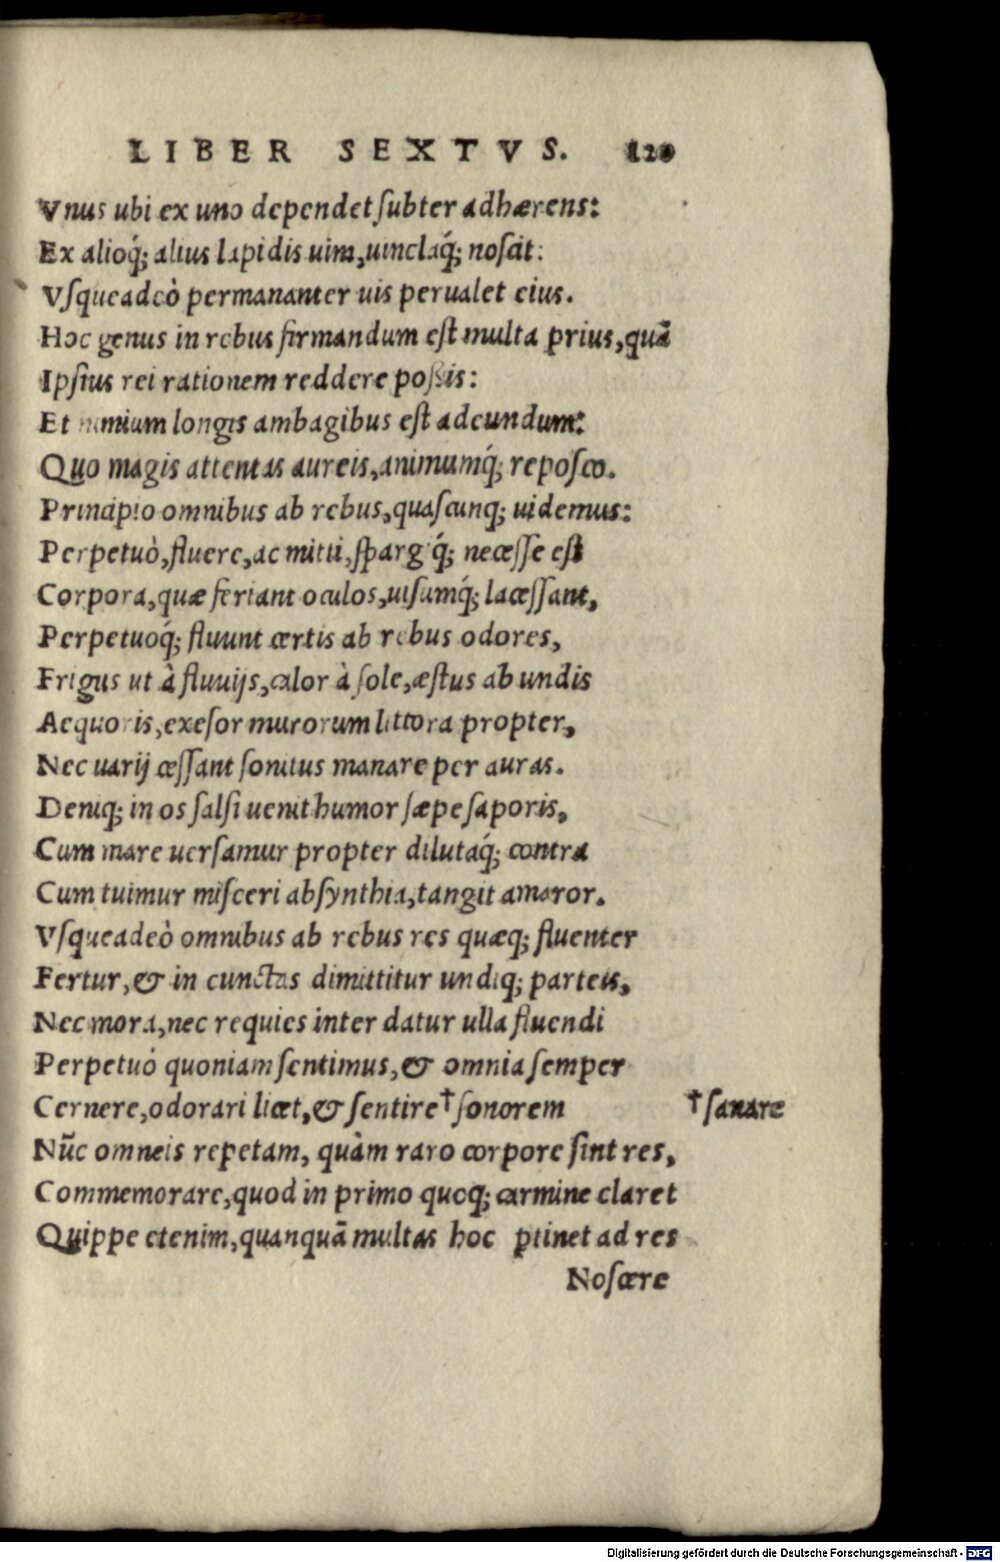 LIBER SEXTVS. 120
Vnus ubi ex uno dependet ſubter adhærens:
Ex alioq́; alius lapidis uim, uinclaq́; noſcit:
Vſqueadeò permananter uis perualet eius.
Hoc genus in rebus firmandum eſt multa prius, quã
Ipſius rei rationem reddere poßis:
Et nimium longis ambagibus eſt adeundum:
Quo magis attentas aureis, animumq́; repoſco.
Principio omnibus ab rebus, quaſcunq; uidemus:
Perpetuò, fluere, ac mitti, ſpargiq́; neceſſe eſt
Corpora, quæ feriant oculos, uiſumq́; laceſſant,
Perpetuoq́; fluunt certis ab rebus odores,
Frigus ut à fluuijs, calor à ſole, æſtus ab undis
Aequoris, exeſor murorum littora propter,
Nec uarij ceſſant ſonitus manare per auras.
Deniq; in os ſalſi uenit humor ſæpe ſaporis,
Cum mare uerſamur propter dilutaq́; contra
Cum tuimur miſceri abſynthia, tangit amaror.
Vſqueadeò omnibus ab rebus res quæq; fluenter
Fertur, & in cunctas dimittitur undiq; parteis,
Nec mora, nec requies inter datur ulla fluendi
Perpetuò quoniam ſentimus, & omnia ſemper
Cernere, odorari licet, & ſentire †ſonorem †ſanare
Nũc omneis repetam, quàm raro corpore ſint res,
Commemorare, quod in primo quoq; carmine claret
Quippe etenim, quanquã multas hoc ꝑtinet ad res
Noſcere
Digitalisierung gefördert durch die Deutsche Forschungsgemeinschaft - DFG